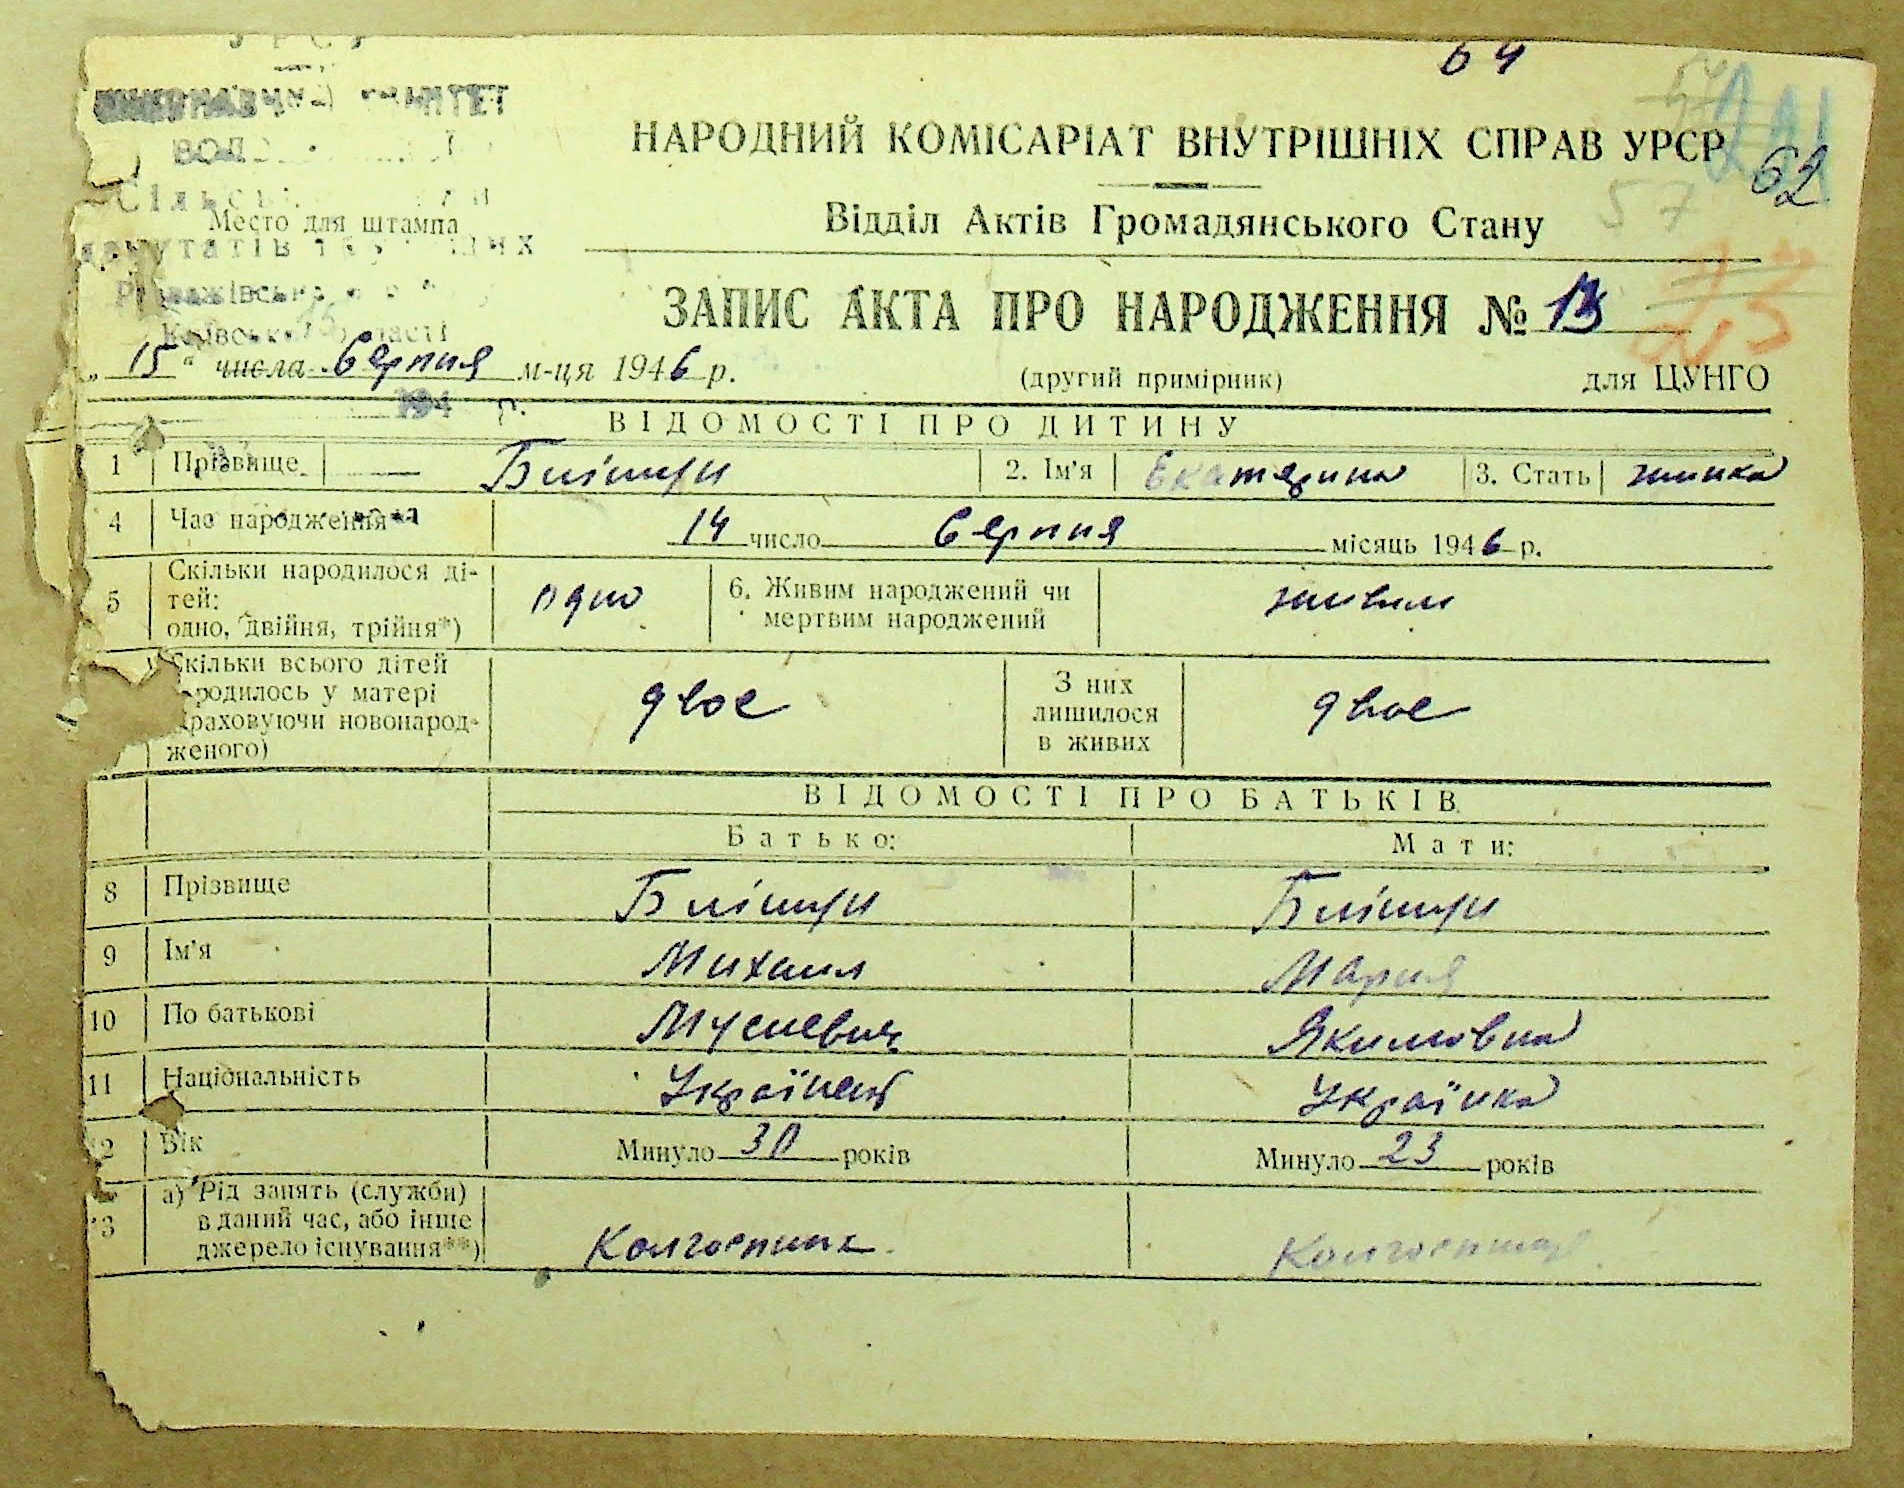 64
УРСР
ВИКОНАВЧИЙ КОМІТЕТ
62
НАРОДНИЙ КОМІСАРІАТ ВНУТРІШНІХ СПРАВ УРСР
57
Відділ Актів Громадянського Стану
Место для штампа
депутатів трудящих
Київської області
ЗАПИС АКТА ПРО НАРОДЖЕННЯ № 13
„ 15 " числа Серпня м-ця 1946 р.
(другий примірник) для ЦУНГО
194 р.
ВІДОМОСТІ ПРО ДИТИНУ
1 Прізвище 2. Ім'я Екатерина 3. Стать жинка
4 Час народження 14 число Серпня місяць 1946 р.
5 Скільки народилося ді-
тей:
одно, двійня, трійня*) одно 6. Живим народжений чи
мертвим народжений живим
Скільки всього дітей
народилось у матері
враховуючи новонарод-
женого) двое З них
лишилося
в живих двое
ВІДОМОСТІ ПРО БАТЬКІВ
Батько: Мати:
8 Прізвище
9 Ім'я Михаил Мария
10 По батькові Мусиевич Якимовна
11 Національність Українец Українка
12 Вік Минуло 30 років Минуло 23 років
13 а) Рід занять (служби)
в даний час, або інше
джерело існування**) Колгоспник Колгоспниця